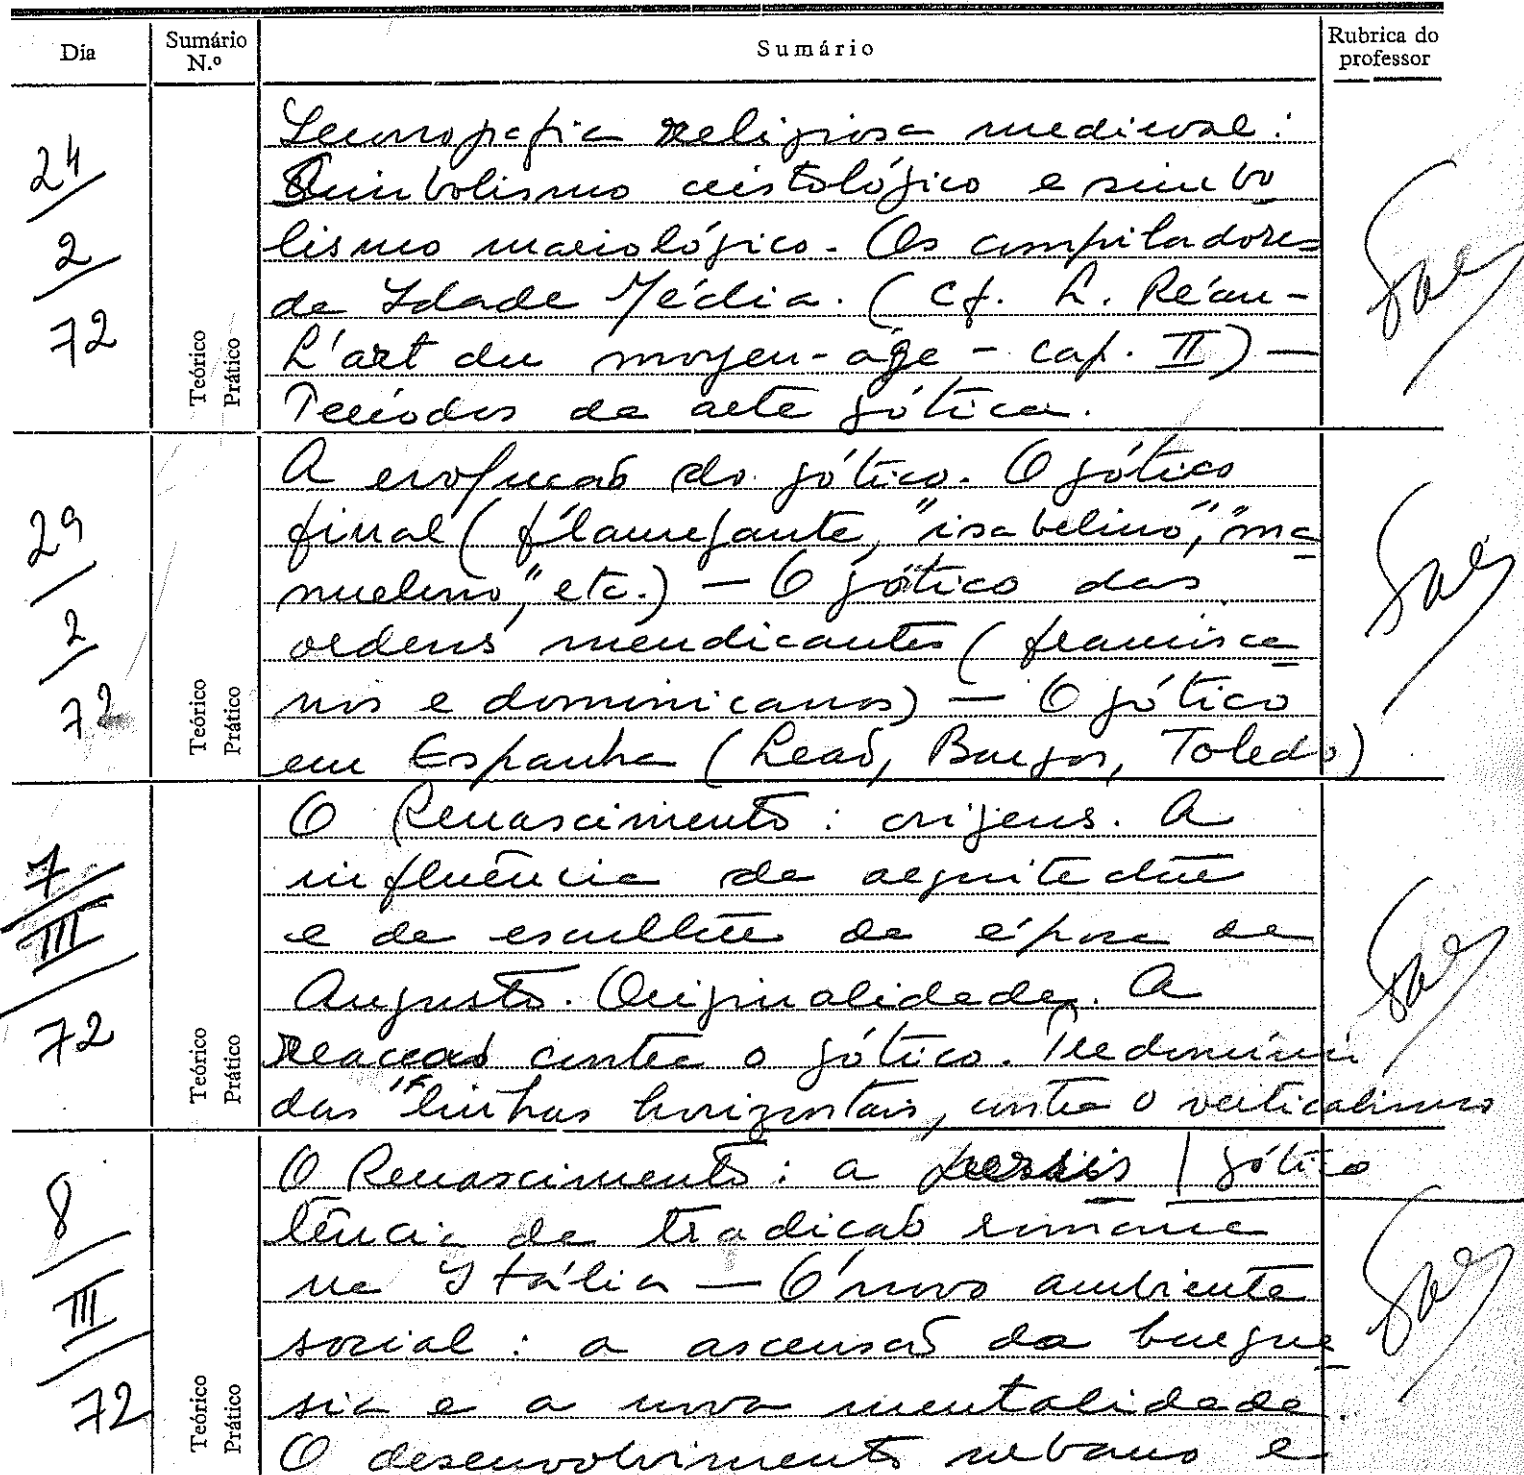 Dia
Sumário N.º
Sumário
Rubrica do professor
24/2/72
Teórico
Prático
Iconografia religiosa medieval:
Simbolismo cristológico e simbo
lismo mariológico. Os compiladores
da Idade Média. (Cf. L. Réau-
L'art du moyen-âge - cap. II) —
Períodos da arte gótica.
29/2/72
Teórico
Prático
A evolução do gótico. O gótico
final (flamejante, "isabelino", "ma
nuelino", etc.) — O gótico das
ordens mendicantes (francisca
nos e dominicanos) — O gótico
em Espanha (Leão, Burgos, Toledo)
7/III/72
Teórico
Prático
O Renascimento: origens. A
influência da arquitectura
e da escultura da época de
Augusto. Originalidade. A
reacção contra o gótico. Predomínio
das linhas horizontais, contra o verticalismo
gótico
8/III/72
Teórico
Prático
O Renascimento: a persis
tência da tradição romana
na Itália — O novo ambiente
social: a ascensão da burgue
sia e a nova mentalidade.
O desenvolvimento urbano e